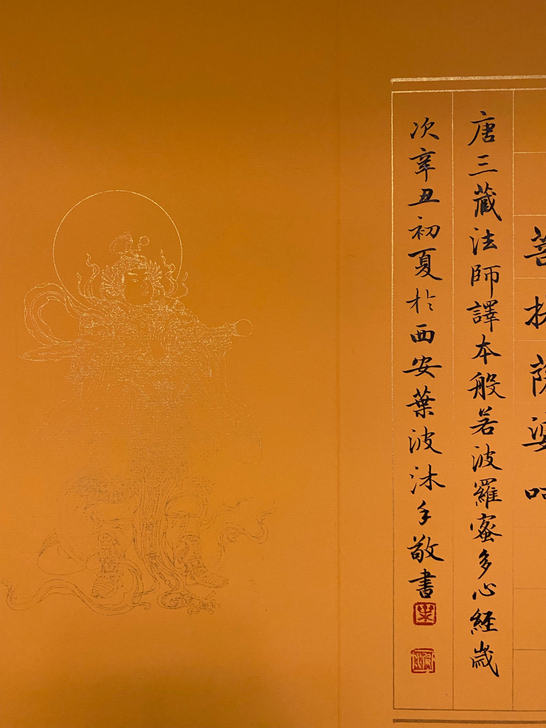 菩提薩婆
唐三藏法師譯本般若波羅蜜多心經歲
次辛丑初夏於西安葉波沐手敬書